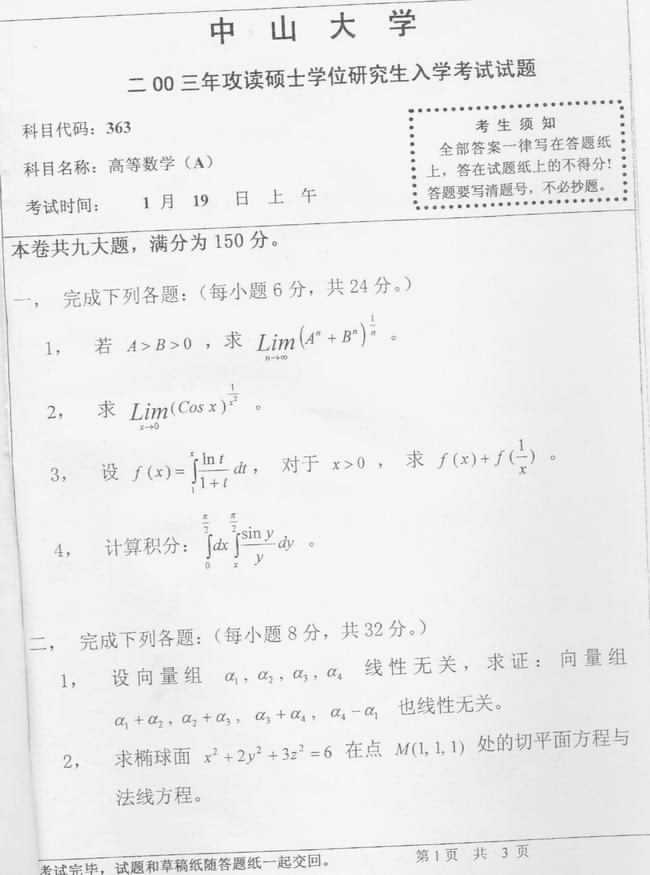 中山大学
二00三年攻读硕士学位研究生入学考试试题
科目代码：363
科目名称：高等数学（A）
考试时间： 1 月 19 日 上 午
考 生 须 知
全部答案一律写在答题纸
上，答在试题纸上的不得分！
答题要写清题号，不必抄题。
本卷共九大题，满分为 150 分。
一， 完成下列各题：（每小题 6 分，共 24 分。）
1， 若 A > B > 0 ，求 Lim_{n→∞} (A^n + B^n)^{1/n} 。
2， 求 Lim_{x→0} (Cos x)^{1/x^2} 。
3， 设 f(x) = ∫_1^x \frac{ln t}{1+t} dt， 对于 x > 0 ， 求 f(x) + f(1/x) 。
4， 计算积分： ∫_0^{π/2} dx ∫_x^{π/2} \frac{sin y}{y} dy 。
二， 完成下列各题：（每小题 8 分，共 32 分。）
1， 设向量组 α₁，α₂，α₃，α₄ 线性无关，求证：向量组
α₁+α₂，α₂+α₃，α₃+α₄，α₄−α₁ 也线性无关。
2， 求椭球面 x²+2y²+3z²=6 在点 M(1, 1, 1) 处的切平面方程与
法线方程。
考试完毕，试题和草稿纸随答题纸一起交回。 第 1 页 共 3 页